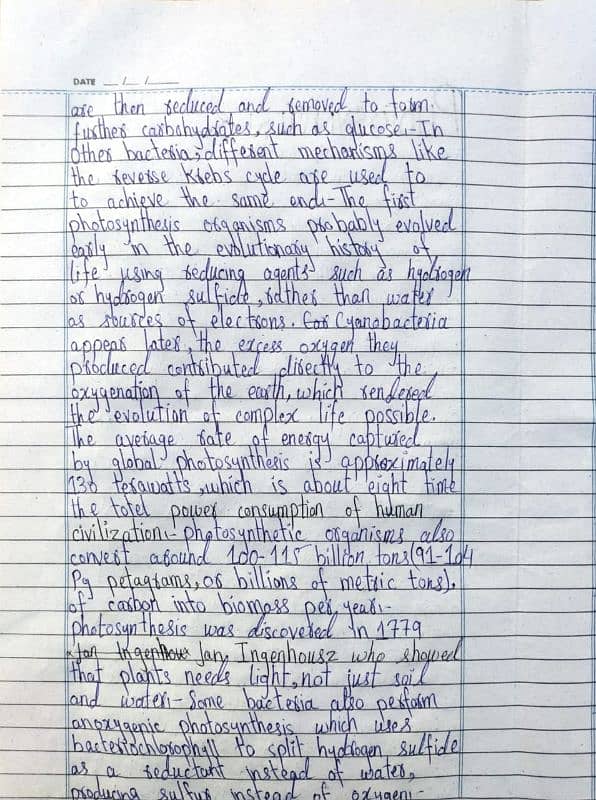 DATE __/__/____
are then reduced and removed to form
further carbohydrates, such as glucose:-In
other bacteria, different mechanisms like
the reverse Krebs cycle are used to
to achieve the same end:-The first
photosynthesis organisms probably evolved
early in the evolutionary history of
life using reducing agents such as hydrogen
or hydrogen sulfide, rather than water
as sources of electrons. Cyanobacteria
appear later, the excess oxygen they
produced contributed directly to the
oxygenation of the earth, which rendered
the evolution of complex life possible.
The average rate of energy captured
by global photosynthesis is approximately
130 terawatts, which is about eight time
the totel power consumption of human
civilization:- photosynthetic organisms also
convert around 100-115 billion tons(91-104
Pg petagrams, or billions of metric tons).
of carbon into biomass per year:-
photosynthesis was discovered in 1779
Jan Ingenhousz who showed
that plants needs light, not just soil
and water:-Some bacteria also perform
anoxygenic photosynthesis which uses
bacteriochlorophyll to split hydrogen sulfide
as a reductant instead of water,
producing sulfur instead of oxygen:-